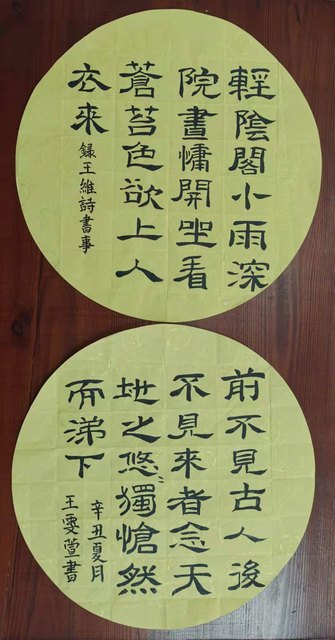 輕陰閣小雨深
院晝慵開坐看
蒼苔色欲上人
衣來
録王維詩書事
前不見古人後
不見來者念天
地之悠獨愴然
而涕下
辛丑夏月
王雯萱書